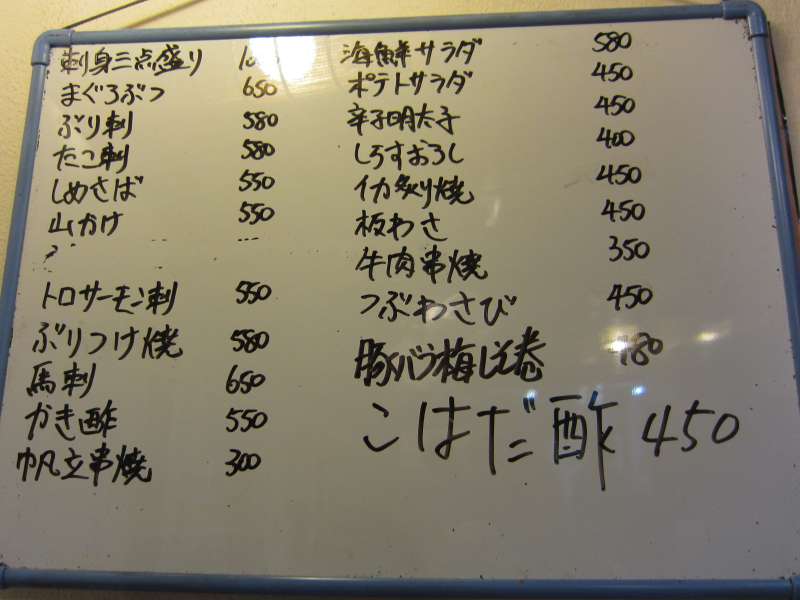 刺身三点盛り
まぐろぶつ 650
ぶり刺 580
たこ刺 580
しめさば 550
山かけ 550
トロサーモン刺 550
ぶりつけ焼 580
馬刺 650
かき酢 550
帆立串焼 300
海鮮サラダ 580
ポテトサラダ 450
辛子明太子 450
しらすおろし 400
イカ炙り焼 450
板わさ 450
牛肉串焼 350
つぶわさび 450
豚バラ梅しそ巻 480
こはだ酢 450